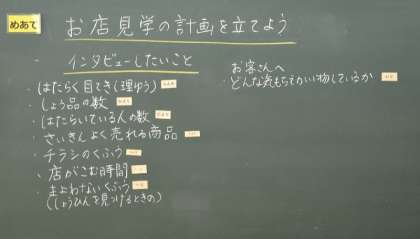 めあて
お店見学の計画を立てよう
インタビューしたいこと
・はたらく目てき(理ゆう)
・しょう品の数
・はたらいている人の数
・さいきんよく売れる商品
・チラシのくふう
・店がこむ時間
・まよわないくふう
(しょうひんを見つけるときの)
お客さんへ
・どんな気もちでかい物しているか